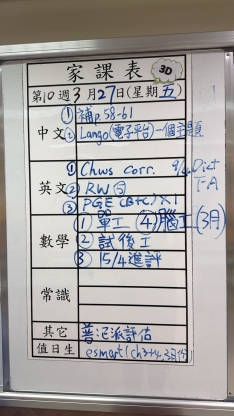 家課表
3D
第10週3月27日(星期五)
中文
① 補p.58-61
② Lango(電子平台)一個主題
英文
① Chws corr. 9/4 Dict
② RW⑤ T-A
③ PGE (B+C) X1
數學
① 單工 ④ 腦工(3月)
② 試後工
③ 15/4進評
常識
其它
普 汜派評估
值日生
esmart(ch3+4, 3月份)